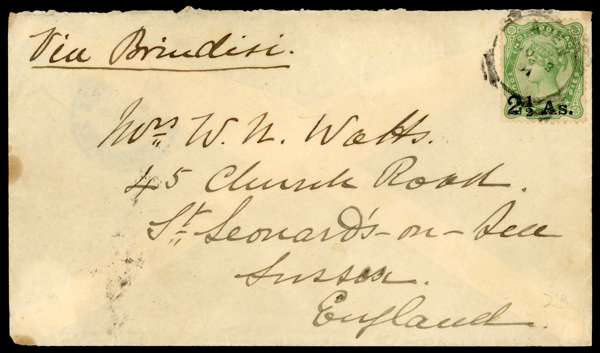 Via Brindisi.
2½ As.
Mrs W. N. Watts.
45 Church Road.
St Leonard's-on-Sea
Sussex.
England.